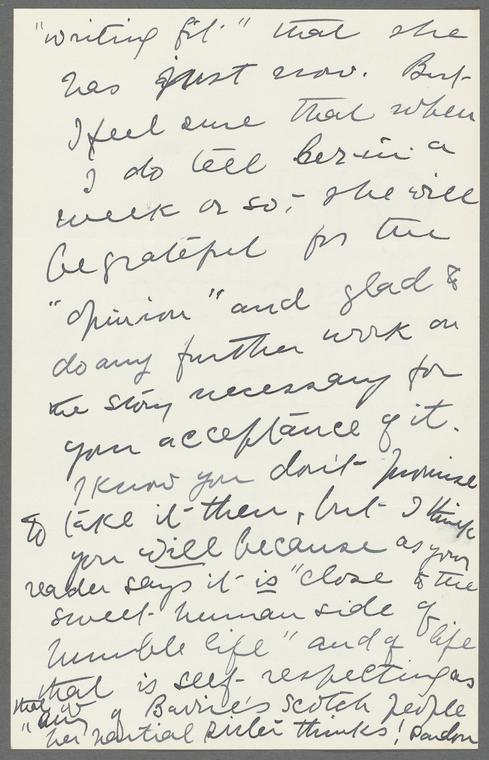 "writing fit" that she
has just now. But
I feel sure that when
I do tell her - in a
week or so, - she will
be grateful for the
"opinion" and glad to
do any further work on
the story necessary for
your acceptance of it.
I know you don't promise
to take it then, but I think
you will because as your
reader says it is "close to the
sweet human side of
humble life" and of life
that is self-respecting as
that of
"any of Barrie's Scotch people
her partial sister thinks! Pardon